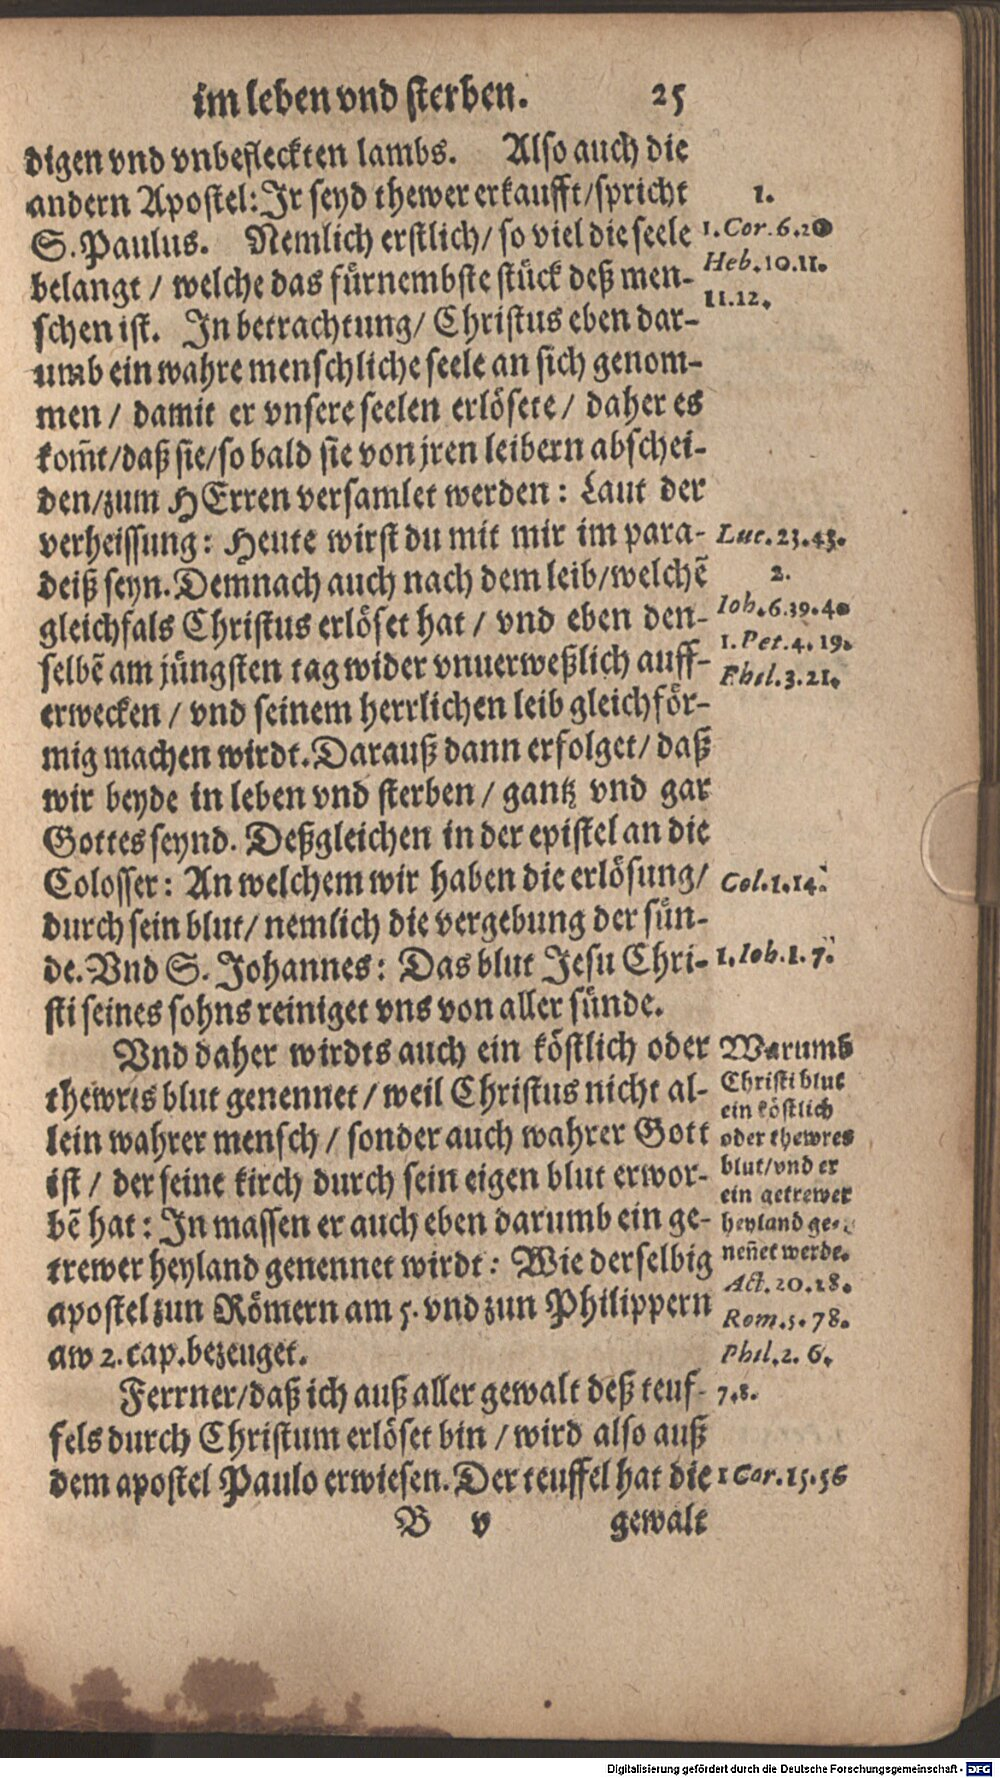 im leben vnd sterben. 25
digen vnd vnbefleckten lambs. Also auch die
andern Apostel: Jr seyd thewer erkaufft/spricht
S. Paulus. Nemlich erstlich/ so viel die seele
belangt / welche das fürnembste stück deß men-
schen ist. Jn betrachtung/ Christus eben dar-
umb ein wahre menschliche seele an sich genom-
men / damit er vnsere seelen erlösete / daher es
kom̃t/daß sie/so bald sie von jren leibern abschei-
den/zum HErren versamlet werden: Laut der
verheissung: Heute wirst du mit mir im para-
deiß seyn. Demnach auch nach dem leib/welchẽ
gleichfals Christus erlöset hat / vnd eben den-
selbẽ am jüngsten tag wider vnuerweßlich auff-
erwecken / vnd seinem herrlichen leib gleichför-
mig machen wirdt. Darauß dann erfolget/ daß
wir beyde in leben vnd sterben / gantz vnd gar
Gottes seynd. Deßgleichen in der epistel an die
Colosser: An welchem wir haben die erlösung/
durch sein blut/ nemlich die vergebung der sün-
de. Vnd S. Johannes: Das blut Jesu Chri-
sti seines sohns reiniget vns von aller sünde.
Vnd daher wirdts auch ein köstlich oder
thewres blut genennet / weil Christus nicht al-
lein wahrer mensch / sonder auch wahrer Gott
ist / der seine kirch durch sein eigen blut erwor-
bẽ hat: Jn massen er auch eben darumb ein ge-
trewer heyland genennet wirdt: Wie derselbig
apostel zun Römern am 5. vnd zun Philippern
aw 2. cap. bezeuget.
Ferrner/daß ich auß aller gewalt deß teuf-
fels durch Christum erlöset bin / wird also auß
dem apostel Paulo erwiesen. Der teuffel hat die
B v gewalt
1.
1. Cor. 6.20
Heb. 10.11.
11.12.
Luc. 23.43.
2.
Ioh. 6.39.40
1. Pet. 4. 19.
Phil. 3.21.
Col. 1.14.
1. Ioh. 1. 7.
Warumb
Christi blut
ein köstlich
oder thewres
blut/vnd er
ein getrewer
heyland ge-
neñet werde.
Act. 20.28.
Rom. 5. 78.
Phil. 2. 6.
7.8.
1 Cor. 15.56
Digitalisierung gefördert durch die Deutsche Forschungsgemeinschaft - DFG